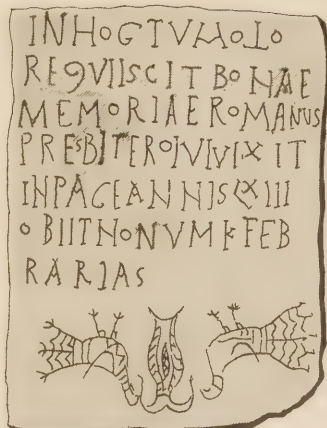 INHOGTVMOLO
REQVIISCITBONAE
MEMORIAEROMANUS
PRESBITEROIVIVIXIT
INPACEANNISLXIII
OBIITNONVMKFEB
RARIAS